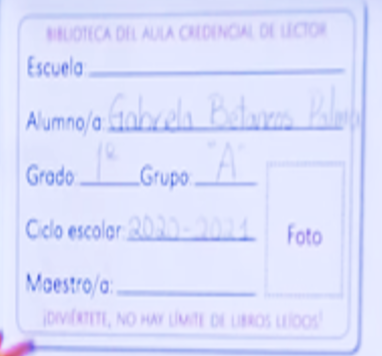 BIBLIOTECA DEL AULA CREDENCIAL DE LECTOR
Escuela:
Alumno/a: Gabriela Betancos
Grado: 1º Grupo: "A"
Ciclo escolar: 2020-2021
Foto
Maestro/a:
¡DIVIÉRTETE, NO HAY LÍMITE DE LIBROS LEÍDOS!